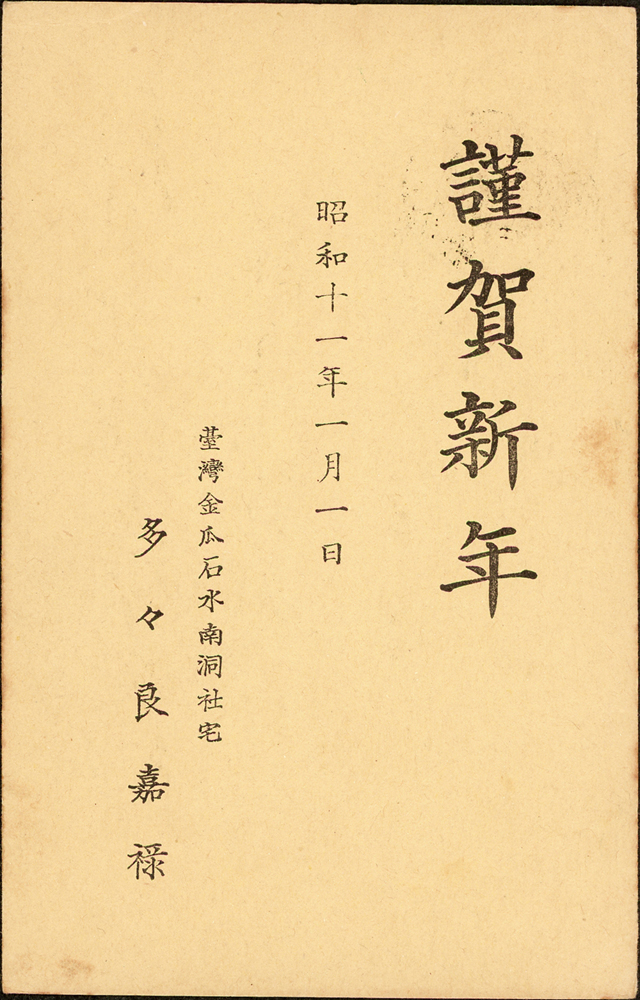 謹賀新年
昭和十一年一月一日
臺灣金瓜石水南洞社宅
多々良嘉祿